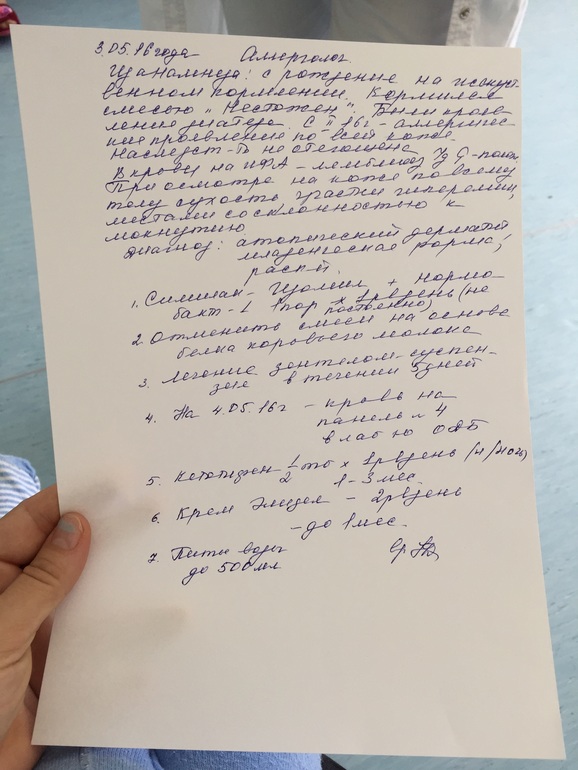 3.05.16 года Аллерголог.
Из анамнеза: с рождение на искуст-
венном кормлении. Кормился
смесью „Нестожен". Были прояв-
ление диатеза. С 16г - аллергичес-
кие проявления по всей коже.
Наследст-ть не отегощена
В крови на ИФА - лямблиоз Ig G - полож
При осмотре на коже по всему
телу сухость, участки гиперемии,
местами со склонностью к
мокнутию
Диагноз: атопический дерматит
младенческая форма,
распр.
1. Симилак - Изомил + Нормо-
бакт - L 1 пор х 1р в день (не
постоянно)
2. Отменить смеси на основе
белка коровьего молока
3. Лечение зентелом - суспен-
зие в течении 5 дней
4. На 4.05.16г - кровь на
панель № 4
в лаб-ю ОДБ
5. Кетотифен 1/2 тб х 1р в день (н/ночь)
1-3 мес.
6. Крем Элидел - 2р в день
- до 1 мес.
7. Пить воды
до 500 мл